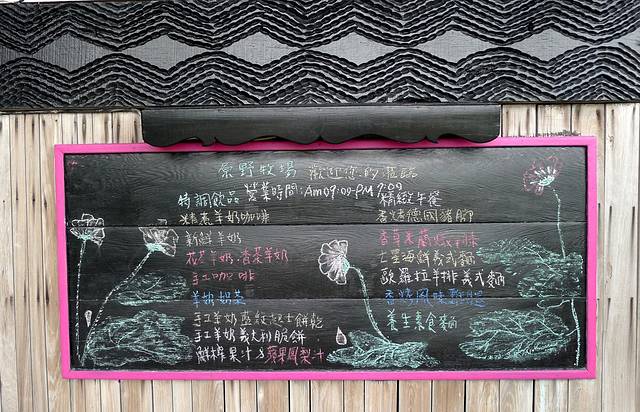 景野牧場 歡迎您的蒞臨
營業時間:Am09:00-PM9:09
特調飲品
精煮羊奶咖啡
新鮮羊奶
花茶羊奶.清茶羊奶
手工咖啡
羊奶奶茶
手工羊奶藍紋起士餅乾
手工羊奶義大利脆餅
鮮榨果汁&蘋果鳳梨汁
精緻午餐
香烤德國豬腳
七星海鮮義式麵
歐羅拉羊排義式麵
香烤風味雞腿
養生素食麵